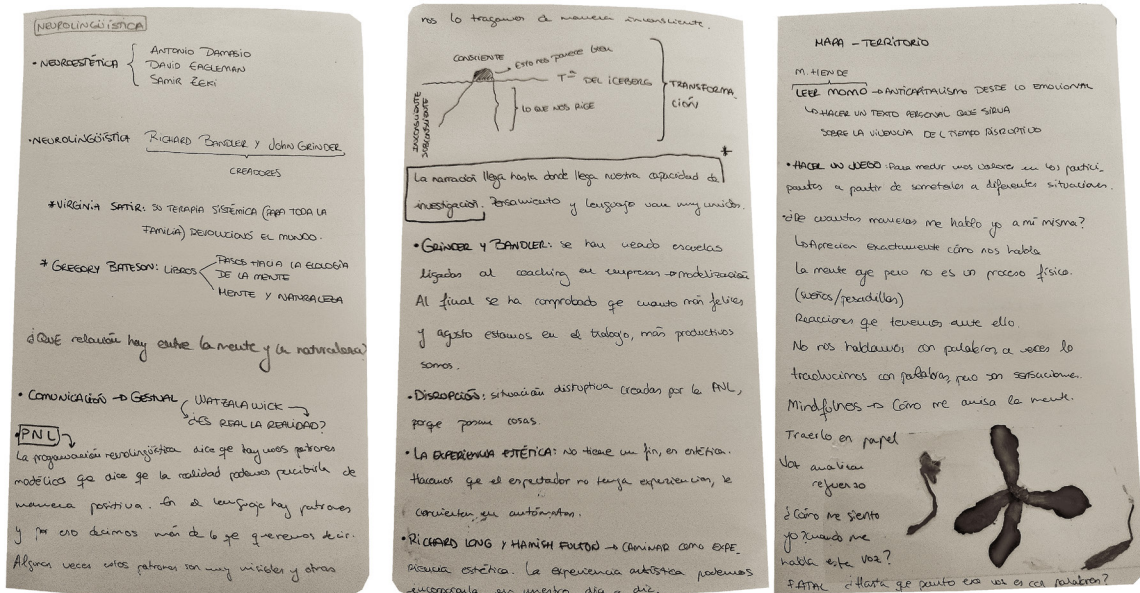 NEUROLINGÜÍSTICA
• NEUROESTÉTICA
ANTONIO DAMASIO
DAVID EAGLEMAN
SAMIR ZEKI
• NEUROLINGÜÍSTICA RICHARD BANDLER Y JOHN GRINDER
CREADORES
* VIRGINIA SATIR: SU TERAPIA SISTÉMICA (PARA TODA LA
FAMILIA) REVOLUCIONÓ EL MUNDO.
* GREGORY BATESON: LIBROS
PASOS HACIA LA ECOLOGÍA
DE LA MENTE
MENTE Y NATURALEZA
¿QUE relación hay entre la mente y la naturaleza?
• COMUNICACIÓN → GESTUAL
WATZALAWICK →
¿ES REAL LA REALIDAD?
• PNL
La programación neurolingüística dice qe hay unos patrones
modélicos qe dice qe la realidad podemos percibirla de
manera positiva. En el lenguaje hay patrones
y por eso decimos más de lo qe queremos decir.
Algunas veces estos patrones son muy visibles y otras
nos lo tragamos de manera inconsciente.
CONSCIENTE
Esto nos parece bien
Tª DEL ICEBERG
LO QUE NOS RIGE
INCONSCIENTE
SUBCONSCIENTE
TRANSFORMA-
CIÓN
*
La narración llega hasta donde llega nuestra capacidad de
investigación. Pensamiento y lenguaje van muy unidos.
• GRINDER Y BANDLER: se han creado escuelas
ligadas al coaching en empresas → modelización
Al final se ha comprobado qe cuanto más felices
y agusto estamos en el trabajo, más productivos
somos.
• DISRUPCIÓN: situación disruptiva creadas por la PNL,
porqe pasan cosas.
• LA EXPERIENCIA ESTÉTICA: No tiene un fin, en estética.
Hacemos que el espectador no tenga experiencias, le
convierten en autómatas.
• RICHARD LONG Y HAMISH FULTON → CAMINAR COMO EXPE-
RIENCIA estética. La experiencia artística podemos
incorporarla en nuestro día a día.
MAPA - TERRITORIO
M. ENDE
LEER MOMO → ANTICAPITALISMO DESDE LO EMOCIONAL
↳ HACER UN TEXTO PERSONAL QUE SIRVA
SOBRE LA VIOLENCIA DEL TIEMPO DISRUPTIVO
• HACER UN JUEGO: Para medir unos valores en los partici
pantes a partir de someterles a diferentes situaciones.
¿De cuantas maneras me hablo yo a mi misma?
↳ Apreciar exactamente cómo nos habla
La mente oye pero no es un proceso físico.
(sueños/pesadillas)
Reacciones qe tenemos ante ello.
No nos hablamos con palabras, a veces lo
traducimos con palabras, pero son sensaciones.
Mindfulnes → Cómo me avisa la mente.
Traerlo en papel
Voz analizar
refuerzo
¿Cómo me siento
yo cuando me
habla esta voz?
FATAL ¿Hasta qe punto esa voz es con palabras?